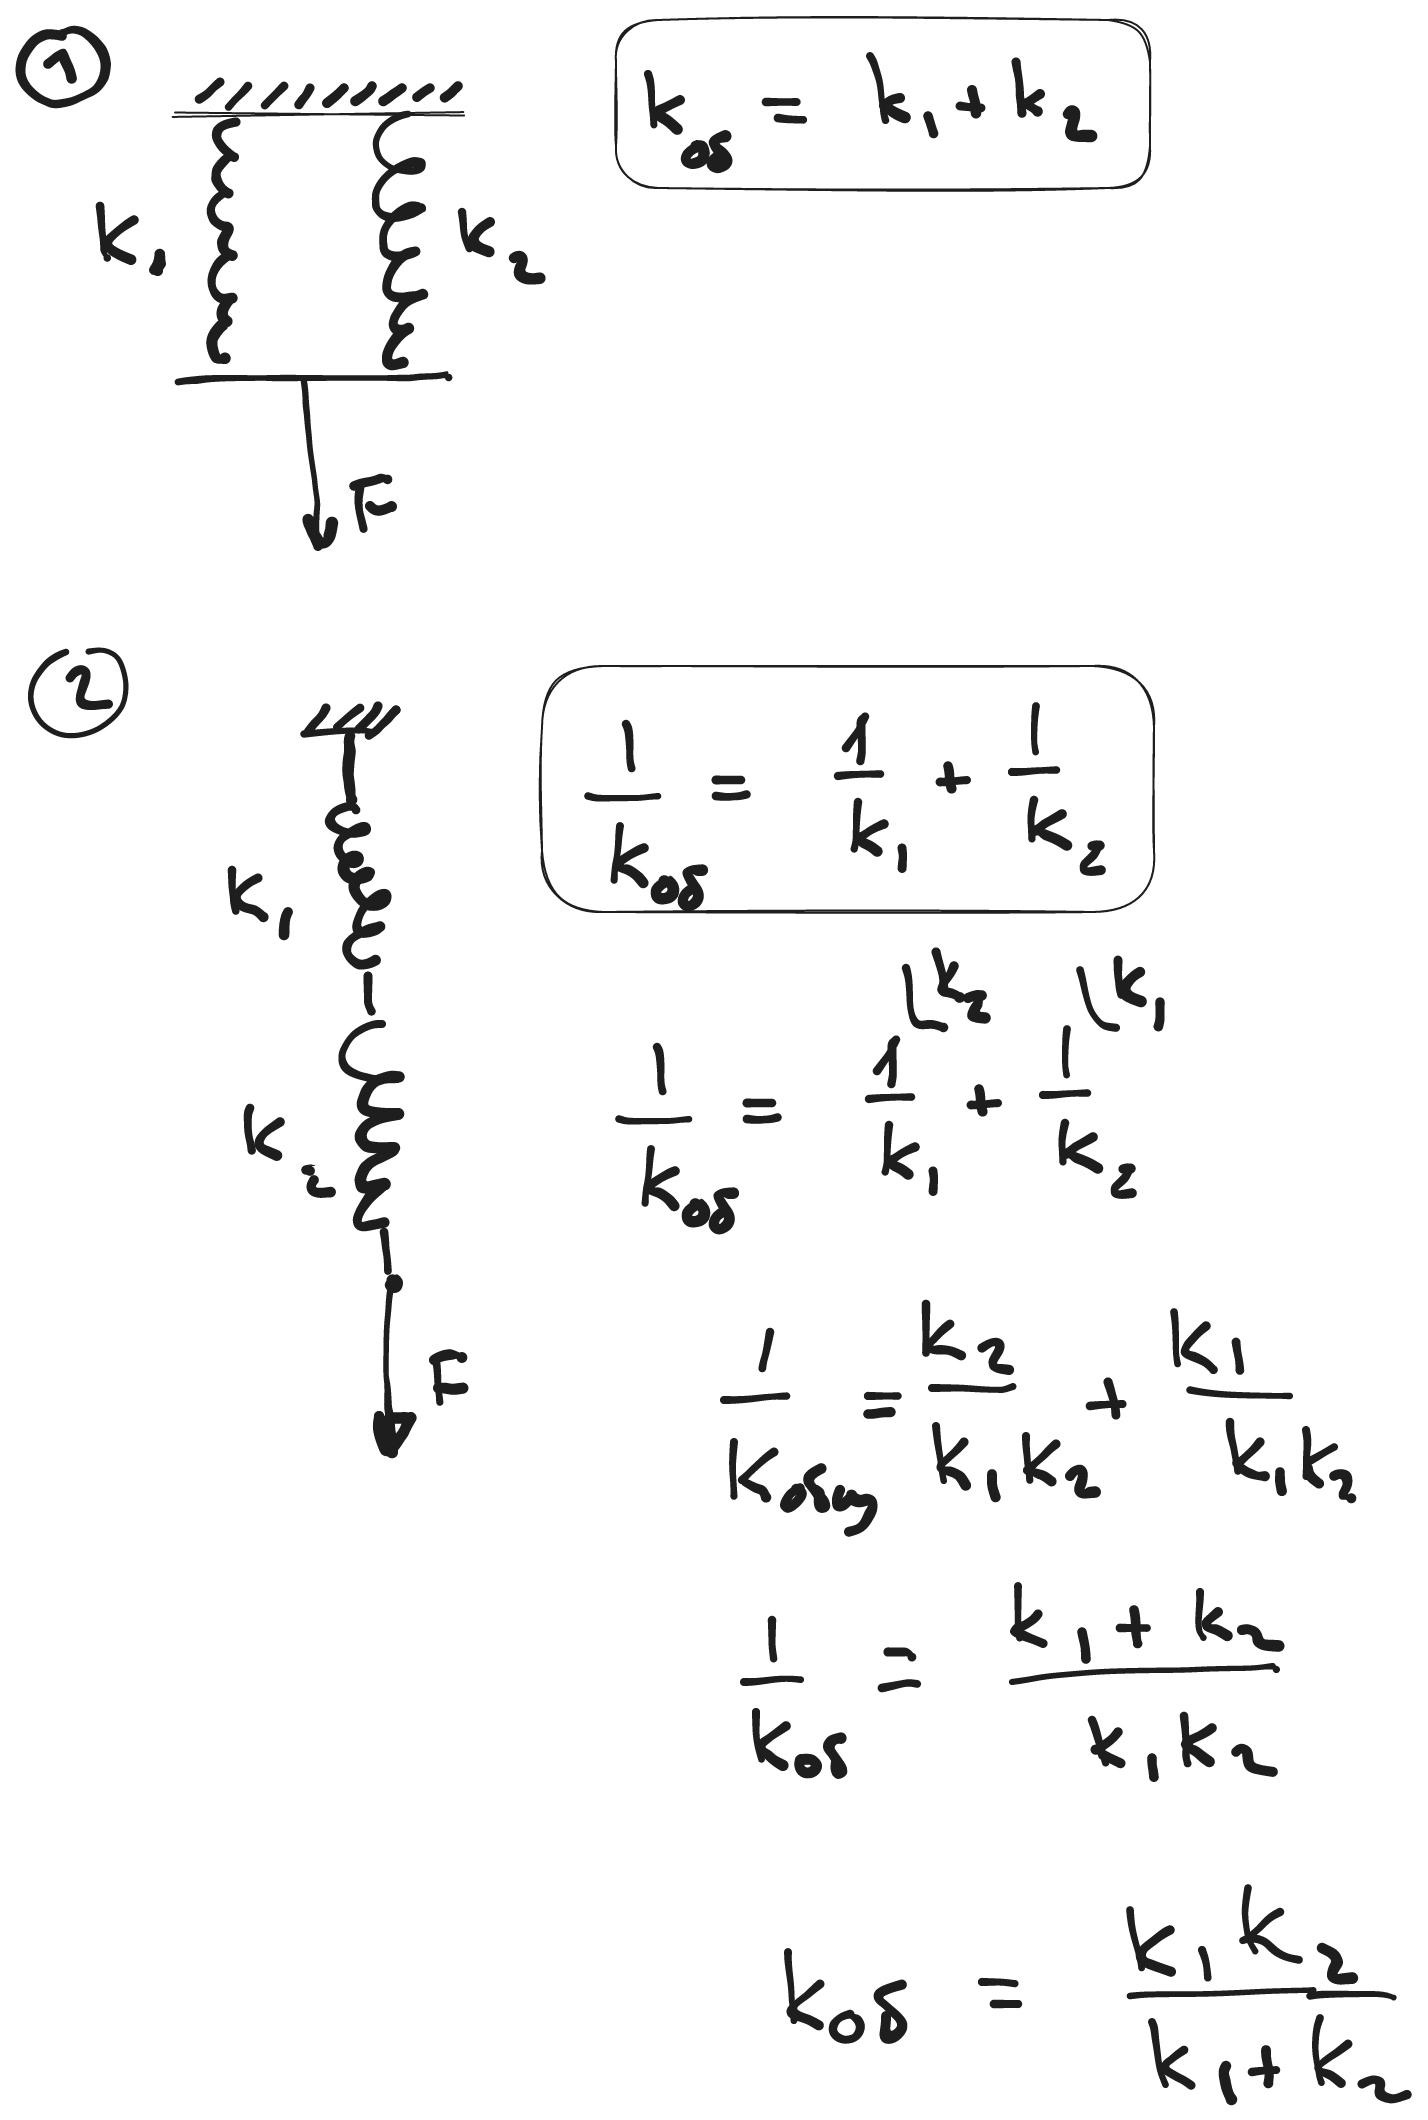 1
k_об = k_1 + k_2
k_1
k_2
F
2
1/k_об = 1/k_1 + 1/k_2
k_1
k_2
F
k_2 k_1
1/k_об = 1/k_1 + 1/k_2
1/k_общ = k_2/(k_1 k_2) + k_1/(k_1 k_2)
1/k_об = (k_1 + k_2)/(k_1 k_2)
k_об = (k_1 k_2)/(k_1 + k_2)